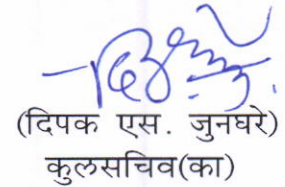 (दिपक एस. जुनघरे)
कुलसचिव(का)